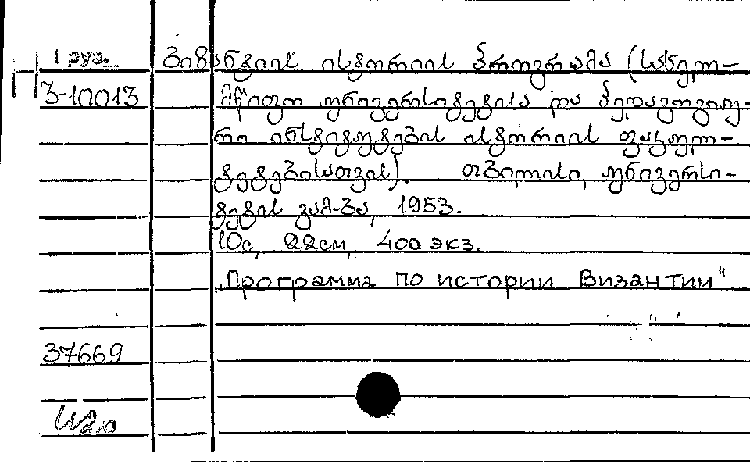 1 груз.
ბიზანტიის ისტორიის პროგრამა (სახელ-
3-10013
მწიფო უნივერსიტეტისა და პედაგოგიუ-
რი ინსტიტუტების ისტორიის ფაკულ-
ტეტებისათვის). თბილისი, უნივერსი-
ტეტის გამ-ბა, 1953.
10с, 22см, 400 экз.
"Программа по истории Византии"
37669